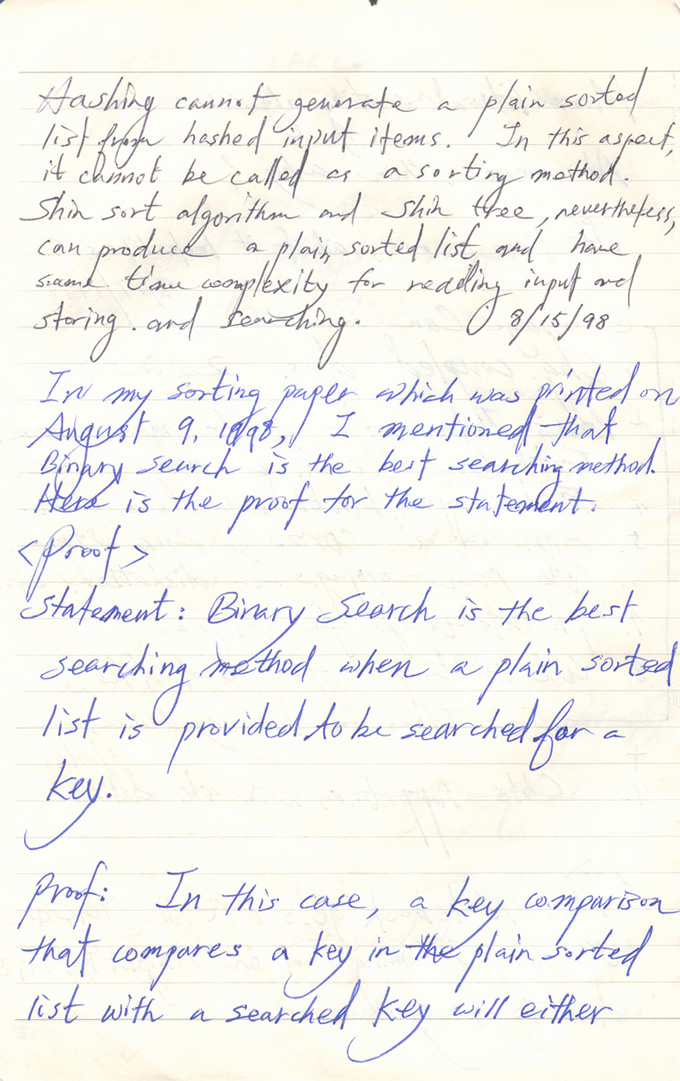 Hashing cannot generate a plain sorted
list from hashed input items. In this aspect,
it cannot be called as a sorting method.
Shin sort algorithm and Shin tree, nevertheless,
can produce a plain sorted list and have
same time complexity for reading input and
storing. and searching. 8/15/98
In my sorting paper which was printed on
August 9, 1998, I mentioned that
Binary search is the best searching method.
Here is the proof for the statement.
<Proof>
Statement: Binary Search is the best
searching method when a plain sorted
list is provided to be searched for a
key.
Proof: In this case, a key comparison
that compares a key in the plain sorted
list with a searched key will either